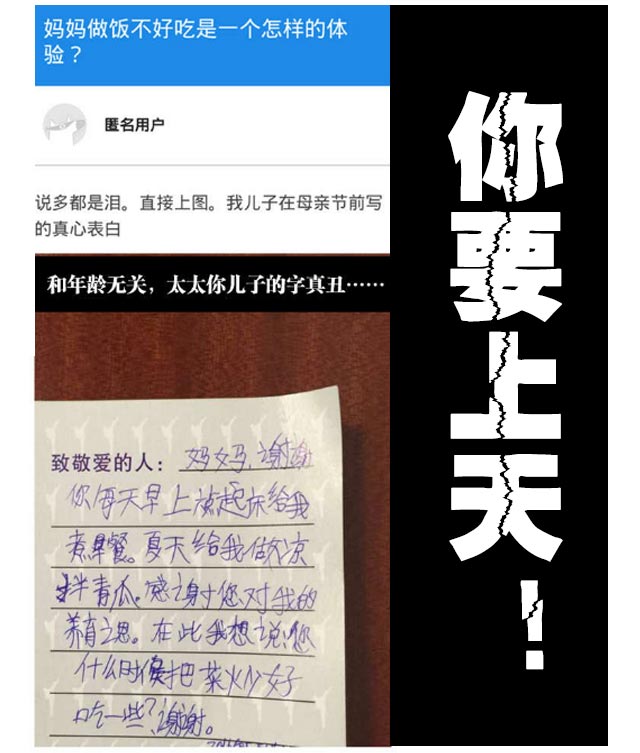 妈妈做饭不好吃是一个怎样的体
验？
匿名用户
说多都是泪。直接上图。我儿子在母亲节前写
的真心表白
和年龄无关，太太你儿子的字真丑……
致敬爱的人：妈妈，谢谢
你每天早上起床给我
煮早餐。夏天给我做凉
拌青瓜。感谢您对我的
养育之恩。在此我想说，您
什么时候把菜炒好
吃一些？谢谢。
你要上天！